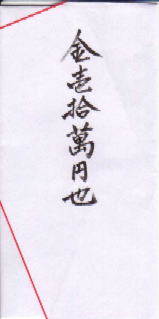 金壱拾萬円也